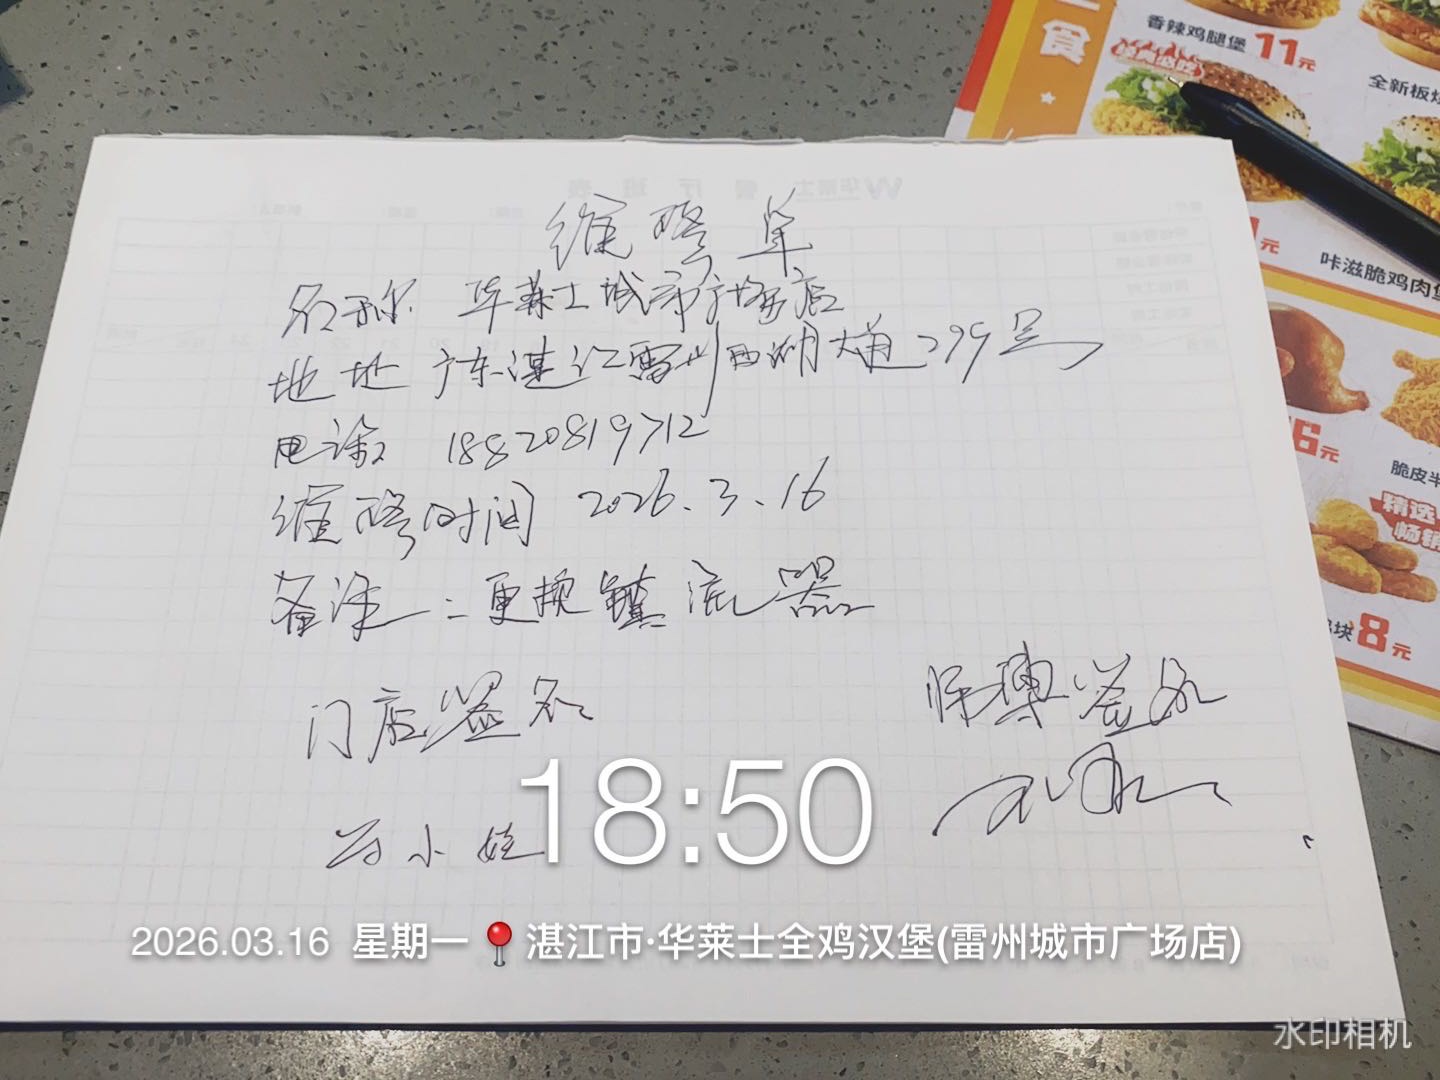 维修单
名称 华莱士城市广场店
地址 广东湛江雷州西湖大道299号
电话 18820819712
维修时间 2026.3.16
备注：更换镇流器
门店签名
师傅签名
小
18:50
2026.03.16 星期一 湛江市·华莱士全鸡汉堡(雷州城市广场店)
水印相机
食
香辣鸡腿堡 11元
全新板烧
元
咔滋脆鸡肉堡
6元
脆皮半
精选
畅销
块 8元